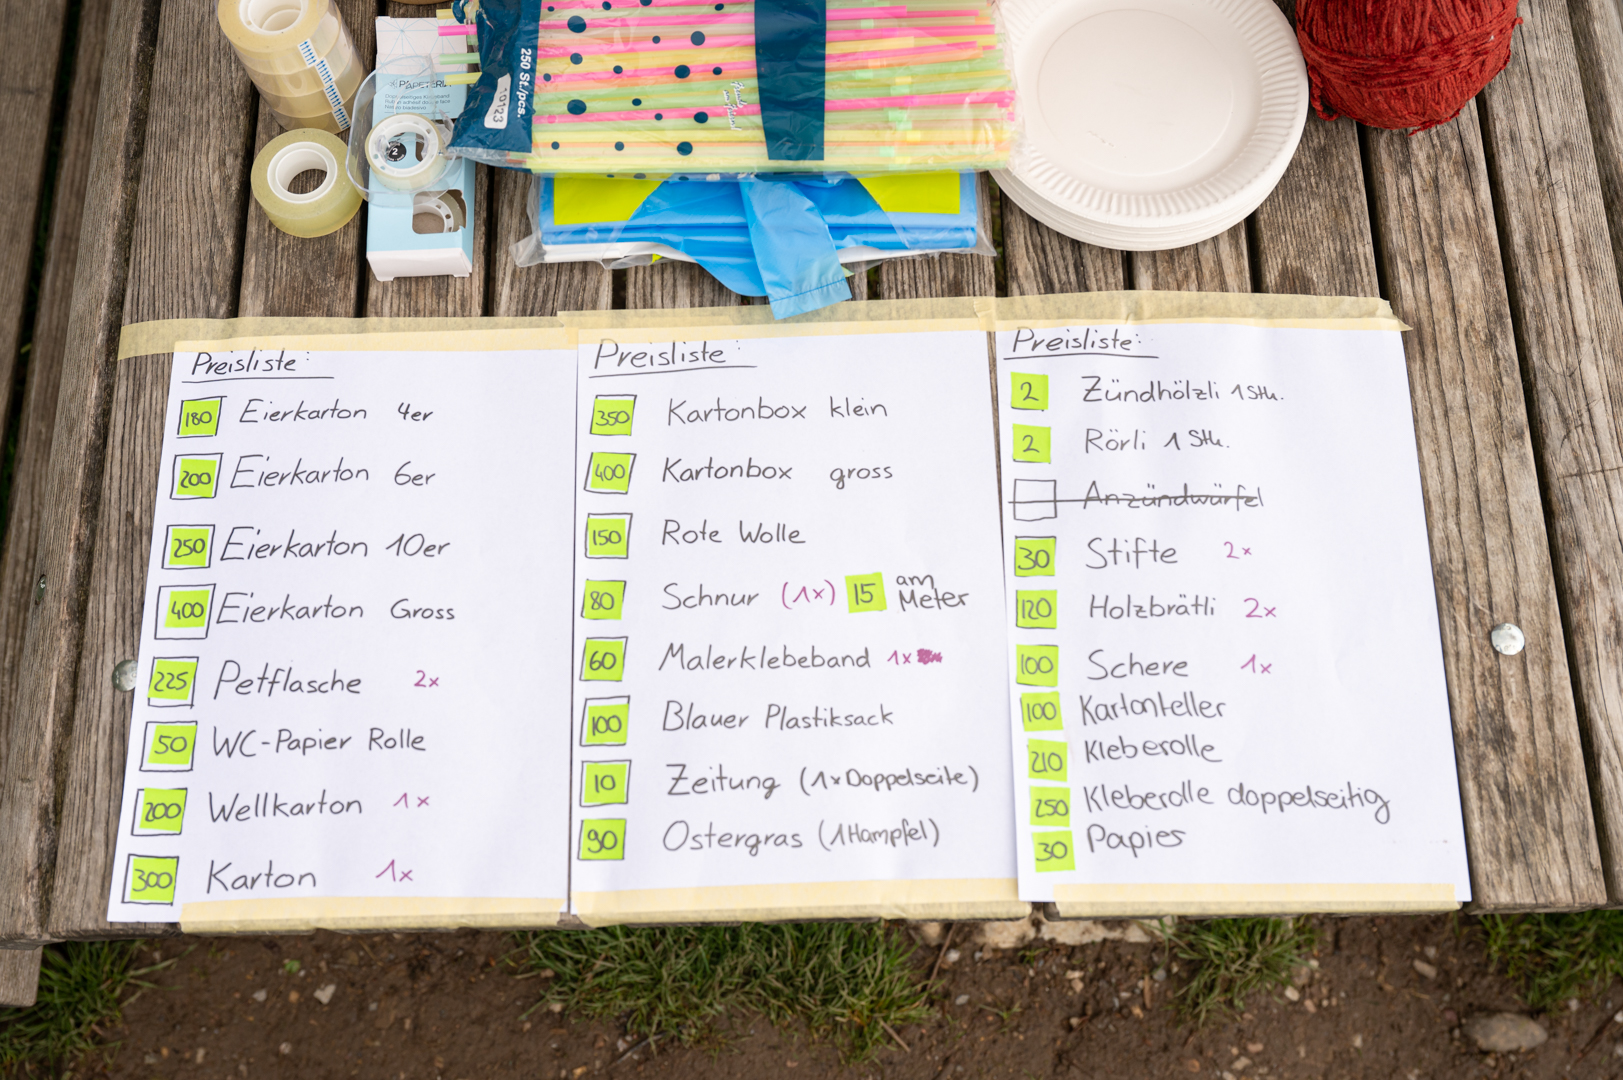 PAPETERI
250 St./pcs.
10123
2
Preisliste:
180 Eierkarton 4er
200 Eierkarton 6er
250 Eierkarton 10er
400 Eierkarton Gross
225 Petflasche 2x
50 WC-Papier Rolle
200 Wellkarton 1x
300 Karton 1x
Preisliste:
350 Kartonbox klein
400 Kartonbox gross
150 Rote Wolle
80 Schnur (1x) 15 am Meter
60 Malerklebeband 1x
100 Blauer Plastiksack
10 Zeitung (1x Doppelseite)
90 Ostergras (1 Hampfel)
Preisliste:
2 Zündhölzli 1 Stk.
2 Rörli 1 Stk.
Anzündwürfel
30 Stifte 2x
120 Holzbrätli 2x
100 Schere 1x
100 Kartonteller
210 Kleberolle
250 Kleberolle doppelseitig
30 Papies